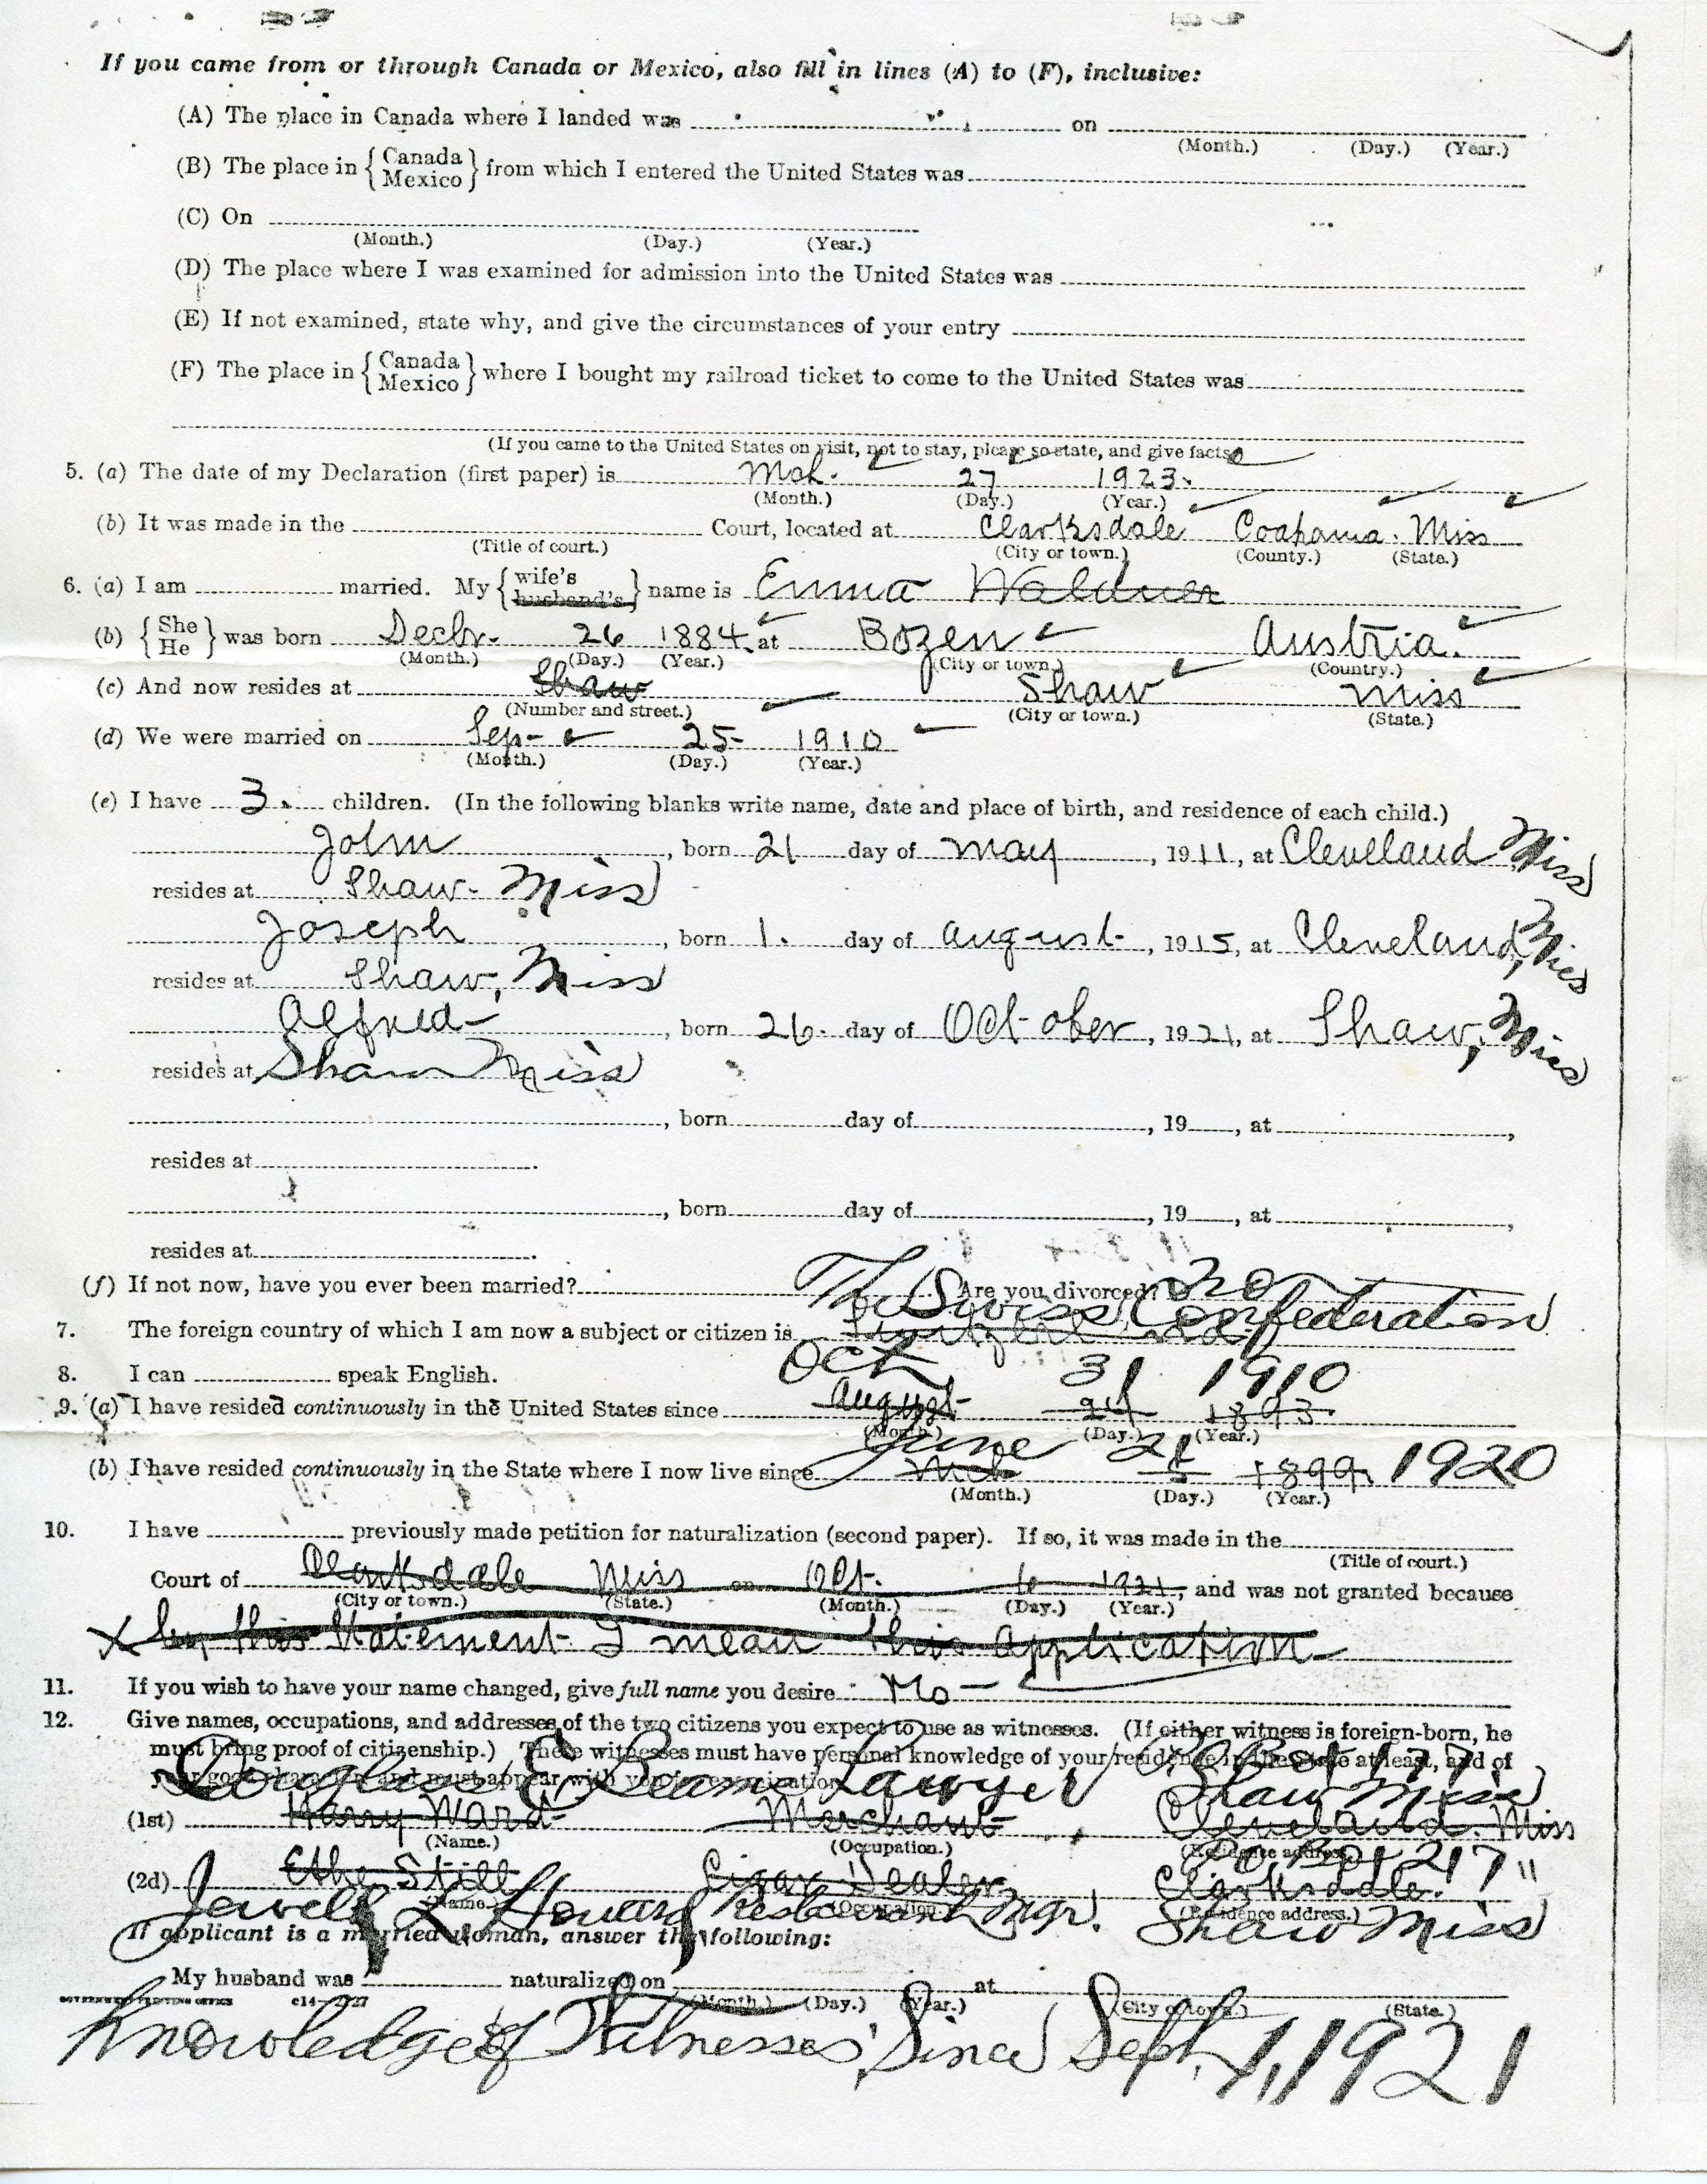 If you came from or through Canada or Mexico, also fill in lines (A) to (F), inclusive:
(A) The place in Canada where I landed was on
(Month.) (Day.) (Year.)
(B) The place in {Canada Mexico} from which I entered the United States was
(C) On
(Month.) (Day.) (Year.)
(D) The place where I was examined for admission into the United States was
(E) If not examined, state why, and give the circumstances of your entry
(F) The place in {Canada Mexico} where I bought my railroad ticket to come to the United States was
(If you came to the United States on visit, not to stay, please so state, and give facts.)
5. (a) The date of my Declaration (first paper) is Mch. 27 1923.
(Month.) (Day.) (Year.)
(b) It was made in the Court, located at Clarksdale Coahama. Miss
(Title of court.) (City or town.) (County.) (State.)
6. (a) I am married. My {wife's husband's} name is Emma Waldner
(b) {She He} was born Decbr. 26 1884. at Bozen Austria.
(Month.) (Day.) (Year.) (City or town.) (Country.)
(c) And now resides at Shaw Shaw Miss
(Number and street.) (City or town.) (State.)
(d) We were married on Sep- 25- 1910
(Month.) (Day.) (Year.)
(e) I have 3. children. (In the following blanks write name, date and place of birth, and residence of each child.)
John, born 21 day of may, 1911, at Cleveland Miss
resides at Shaw- Miss
Joseph, born 1. day of august, 1915, at Cleveland, Miss
resides at Shaw, Miss
Alfred, born 26. day of October, 1921, at Shaw, Miss
resides at Shaw Miss
, born day of , 19 , at ,
resides at .
, born day of , 19 , at ,
resides at .
(f) If not now, have you ever been married? Are you divorced? no
The Swiss Confederation
7. The foreign country of which I am now a subject or citizen is
Oct 31 1910
8. I can speak English.
9. (a) I have resided continuously in the United States since August 24 1893.
(Month.) (Day.) (Year.)
June 21
(b) I have resided continuously in the State where I now live since Mch 1899. 1920
(Month.) (Day.) (Year.)
10. I have previously made petition for naturalization (second paper). If so, it was made in the
(Title of court.)
Court of Clarksdale Miss on Oct. 6 1921, and was not granted because
(City or town.) (State.) (Month.) (Day.) (Year.)
X by this Statement I mean this application
11. If you wish to have your name changed, give full name you desire No
12. Give names, occupations, and addresses of the two citizens you expect to use as witnesses. (If either witness is foreign-born, he
must bring proof of citizenship.) These witnesses must have personal knowledge of your residence in the State at least, and of
your good character and must appear with you for examination
Douglas E Lawyer Shaw Miss
(1st) Harry Ward Merchant Cleveland. Miss
(Name.) (Occupation.) (Residence address.)
P.O. Box 217
(2d) Ethe Still Cigar Dealer Clarksdale. "
(Name.) (Occupation.) (Residence address.)
Jewell L Howard Restaurant Mgr. Shaw Miss
If applicant is a married woman, answer the following:
My husband was naturalized on at
(Month.) (Day.) (Year.) (City or town.) (State.)
GOVERNMENT PRINTING OFFICE
Knowledge of Witnesses, Since Sept. 1, 1921